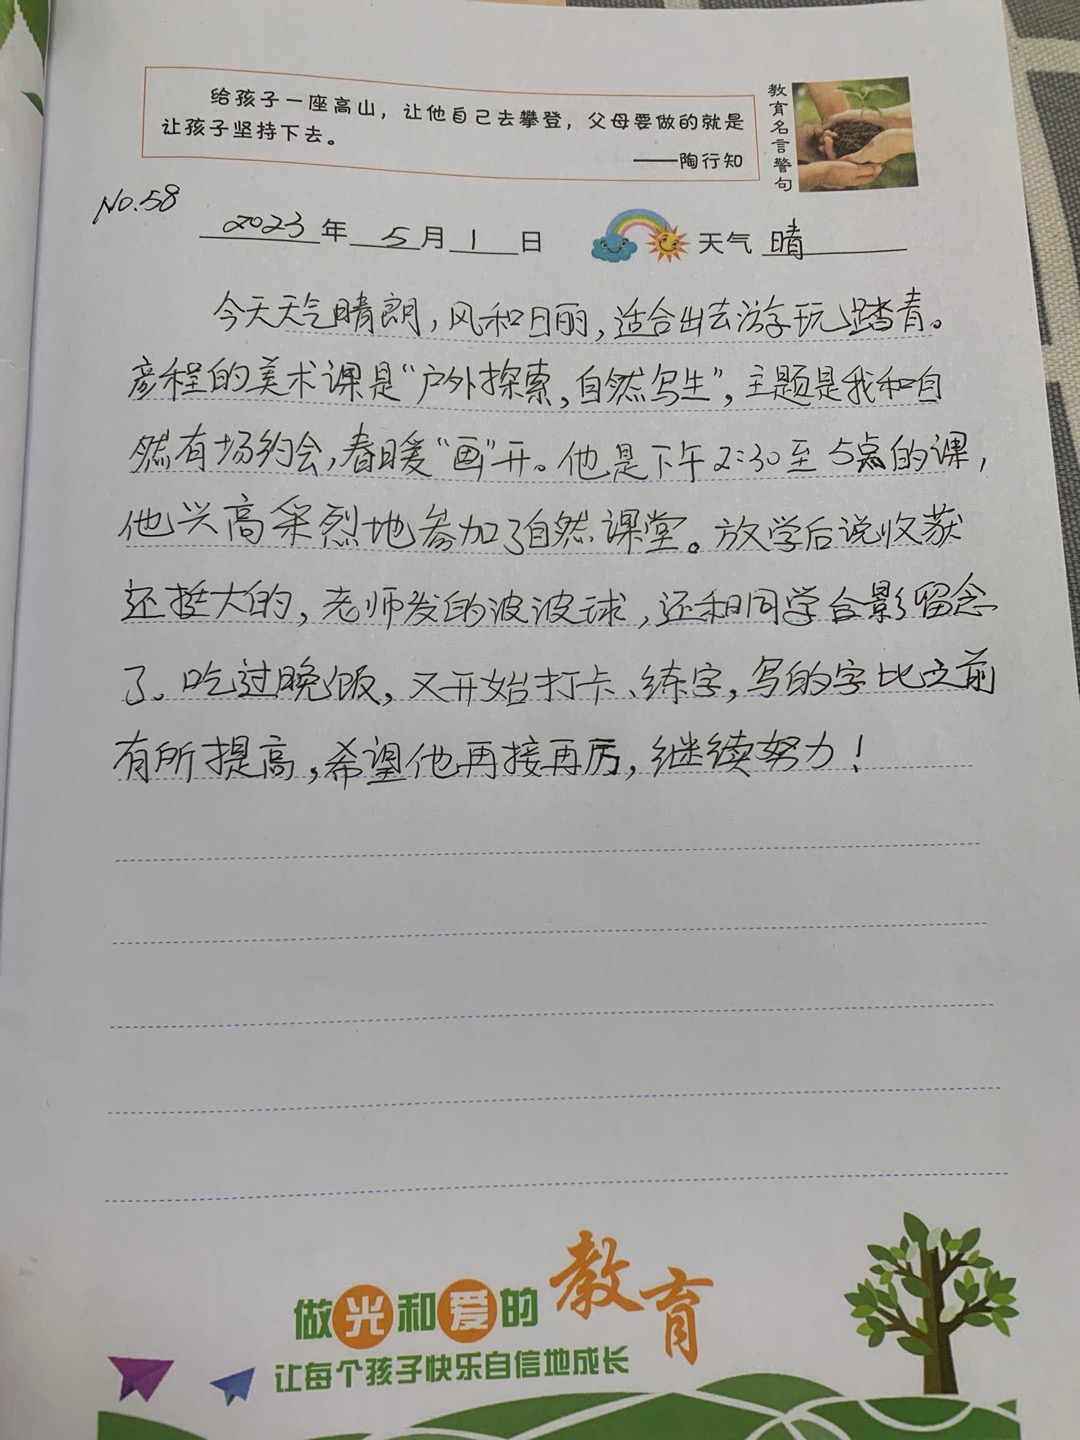 给孩子一座高山，让他自己去攀登，父母要做的就是
让孩子坚持下去。
——陶行知
教育名言警句
No.58
2023年5月1日
天气 晴
今天天气晴朗,风和日丽,适合出去游玩踏青。
彦程的美术课是“户外探索,自然写生”,主题是我和自
然有场约会,春暖“画”开。他是下午2:30至5点的课,
他兴高采烈地参加了自然课堂。放学后说收获
还挺大的,老师发的波波球,还和同学合影留念
了。吃过晚饭,又开始打卡、练字,写的字比之前
有所提高,希望他再接再厉,继续努力!
做光和爱的教育
让每个孩子快乐自信地成长